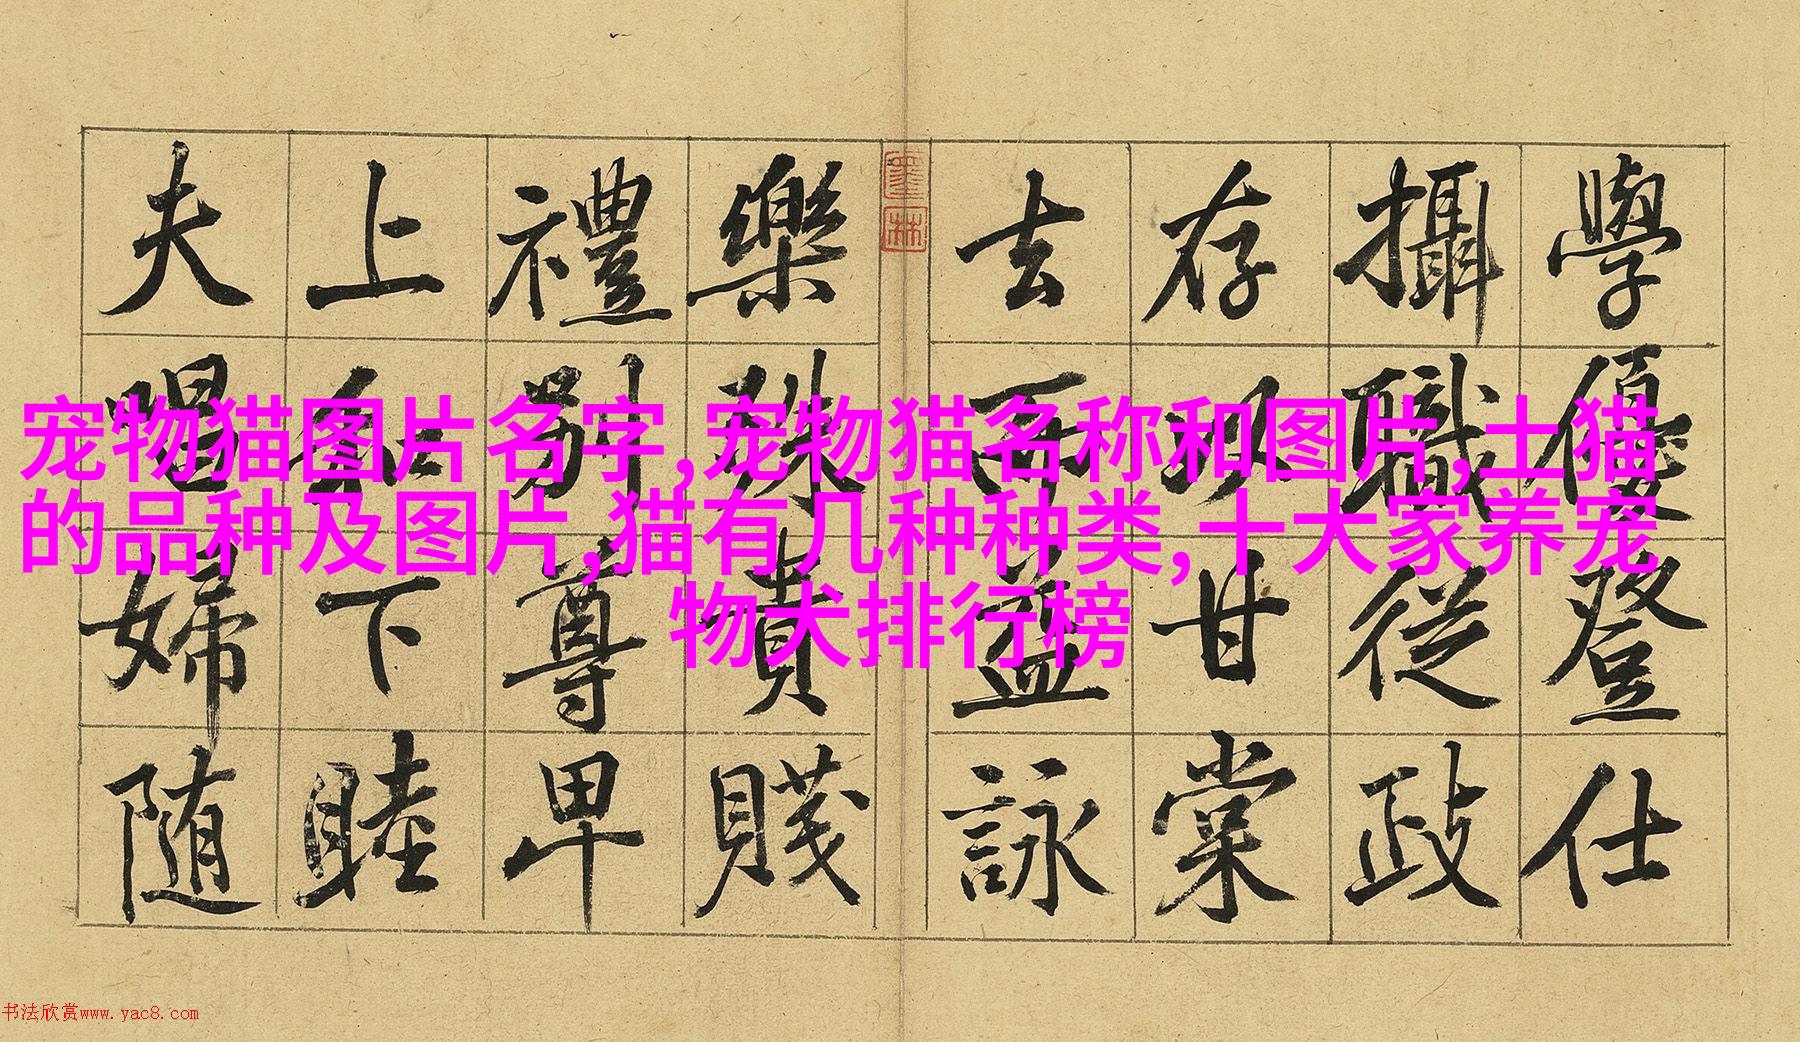 學優登仕
攝職從政
存以甘棠
去而益詠
墨林
樂殊貴賤
禮別尊卑
上和下睦
夫唱婦随
宠物猫图片名字,宠物猫名称和图片,土猫
的品种及图片,猫有几种种类,十大家养宠
物犬排行榜
书法欣赏www.yac8.com